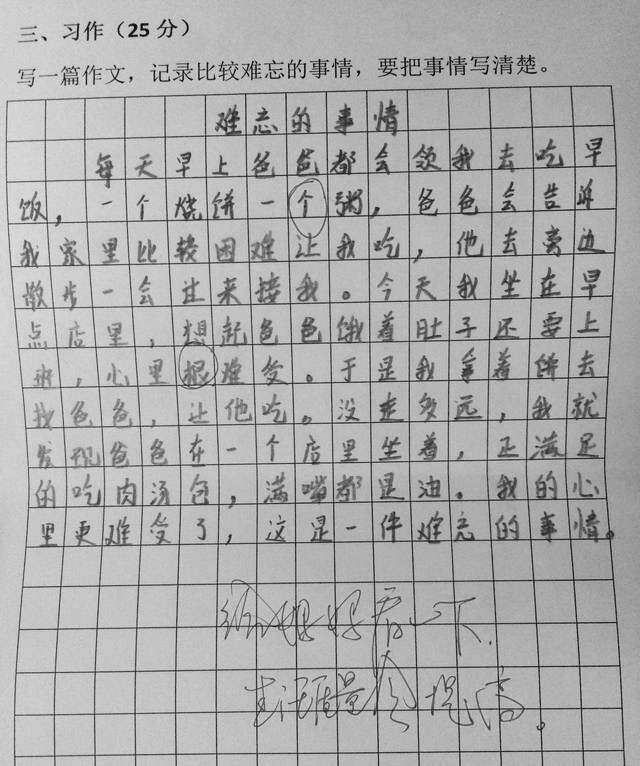 三、习作（25 分）
写一篇作文，记录比较难忘的事情，要把事情写清楚。
难忘的事情
每天早上爸爸都会领我去吃早
饭，一个烧饼一个粥，爸爸会告诉
我家里比较困难让我吃，他去旁边
散步一会过来接我。今天我坐在早
点店里，想起爸爸饿着肚子还要上
班，心里很难受。于是我拿着饼去
找爸爸，让他吃。没走多远，我就
发现爸爸在一个店里坐着，正满足
的吃肉汤包，满嘴都是油。我的心
里更难受了，这是一件难忘的事情。
给妈妈看一下，
生活质量会提高。